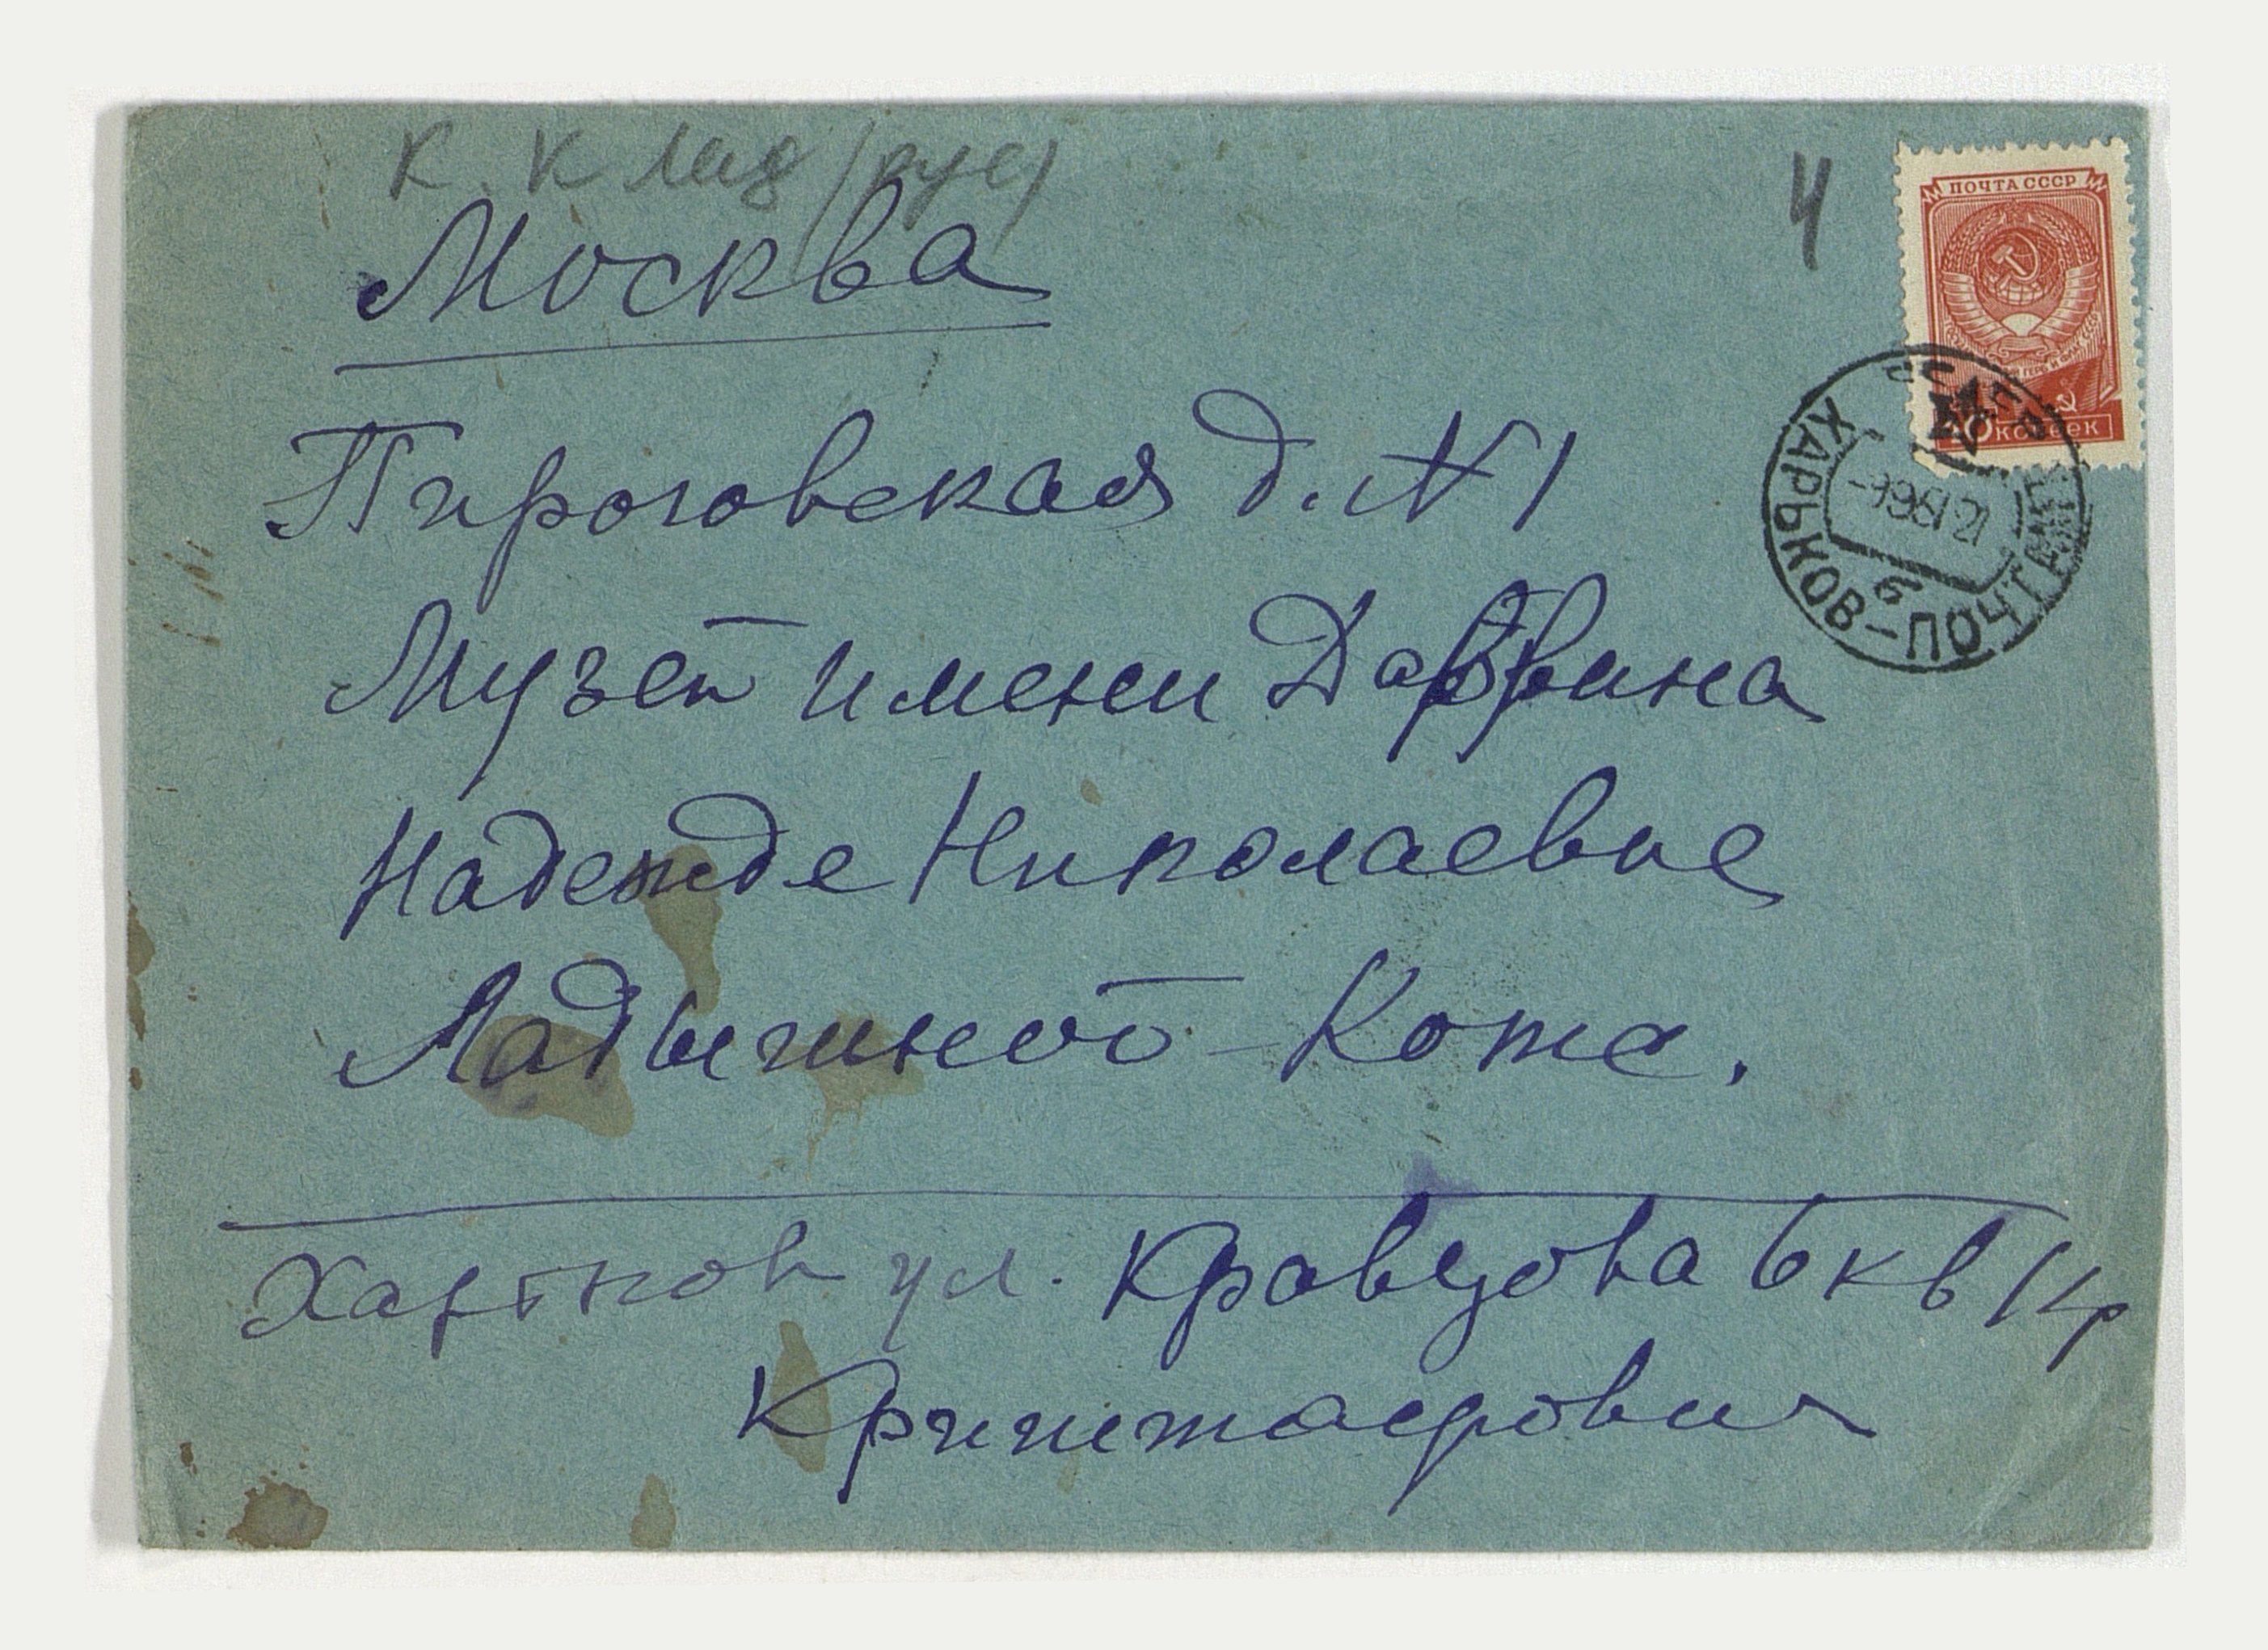 К. К Лад (рус)
4
ПОЧТА СССР
40 копеек
Москва
Пироговская д. N 1
ХАРЬКОВ-ПОЧТАМТ
УССР
6
Музей имени Дарвина
Надежде Николаевне
Ладыгиной-Котс.
Харьков ул. Кравцова 6 кв 14
Кринштаерович